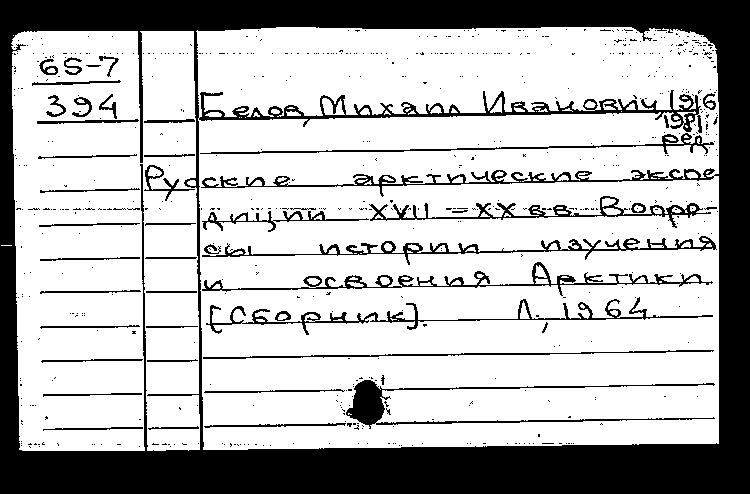 65-7
394
Белов, Михаил Иванович, 1916
1981
ред.
Русские арктические экспе-
диции XVII – XX вв. Вопро-
сы истории изучения
и освоения Арктики.
[Сборник]. Л., 1964.